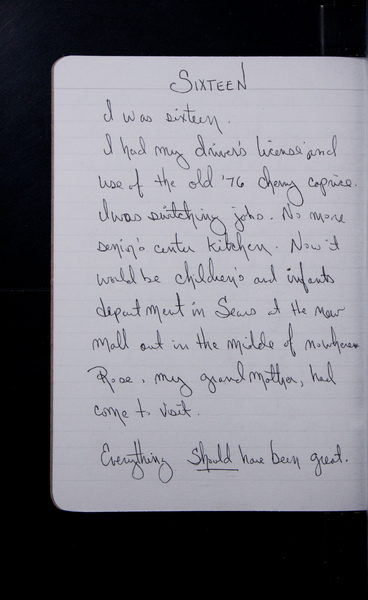 SIXTEEN
I was sixteen.
I had my driver's license and
use of the old '76 chevy caprice.
I was switching jobs. No more
senior's center kitchen. Now it
would be children's and infants
department in Sears at the new
mall out in the middle of nowhere.
Rose, my grandmother, had
come to visit.
Everything should have been great.